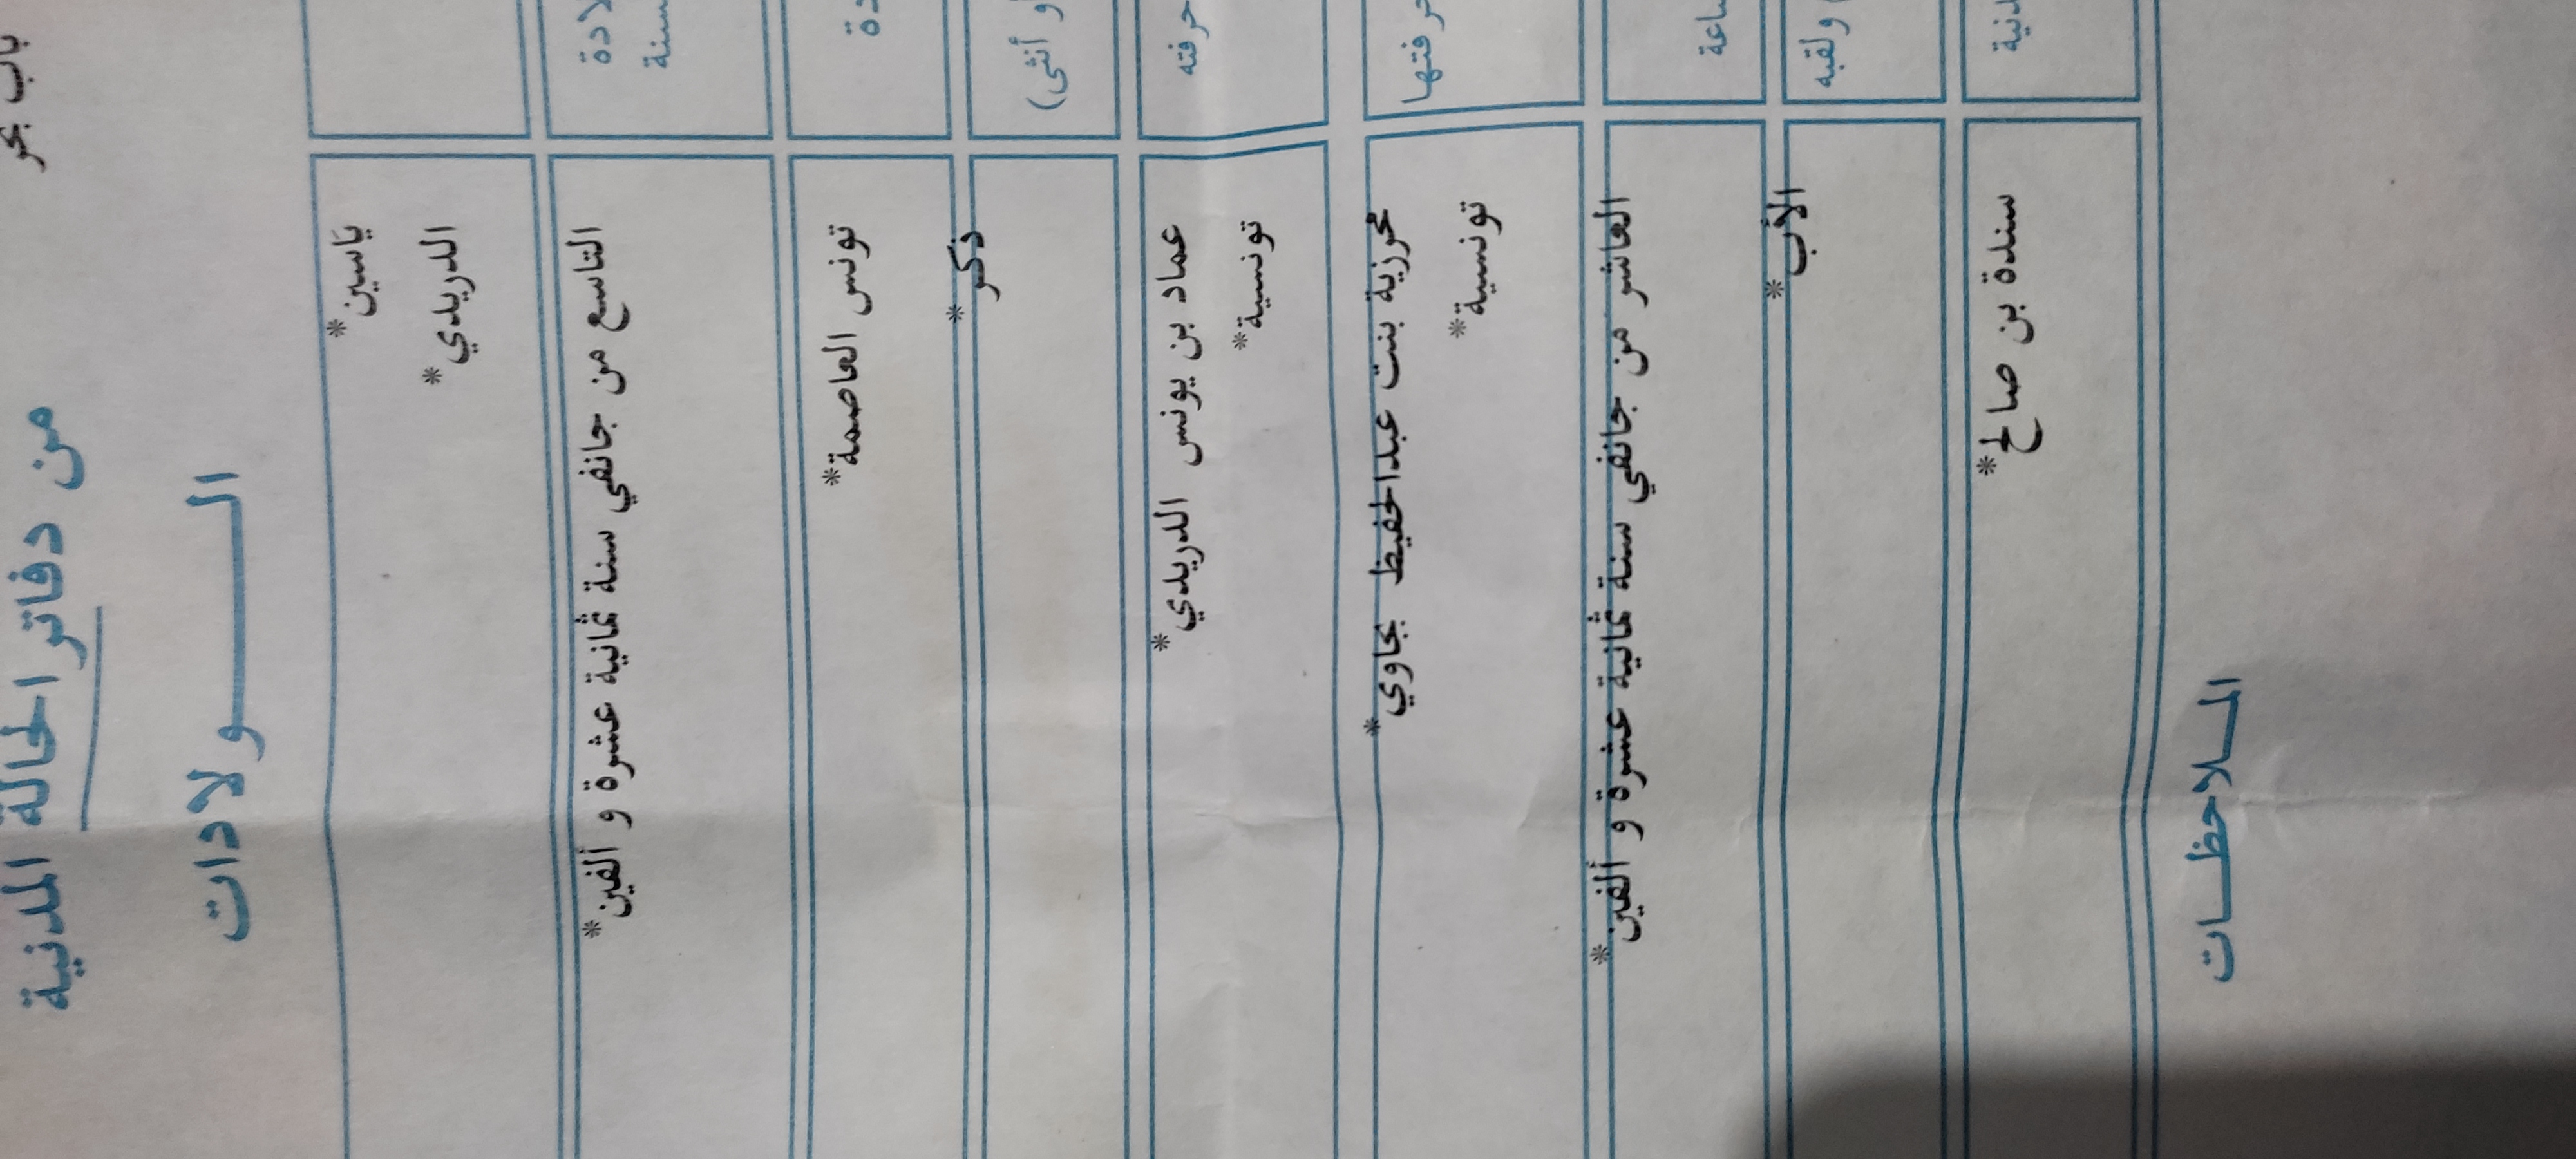 باب بحر
من دفاتر الحالة المدنية
الـــولادات
ياسين*
الدريدي*
سنة
التاسع من جانفي سنة ثمانية عشرة و ألفين*
تونس العاصمة*
و أنثى)
ذكر*
حرفته
عماد بن يونس الدريدي*
تونسية*
حرفتها
محرزية بنت عبدالحفيظ بجاوي*
تونسية*
العاشر من جانفي سنة ثمانية عشرة و ألفين*
ولقبه
الأب*
سندة بن صالح*
الملاحظات